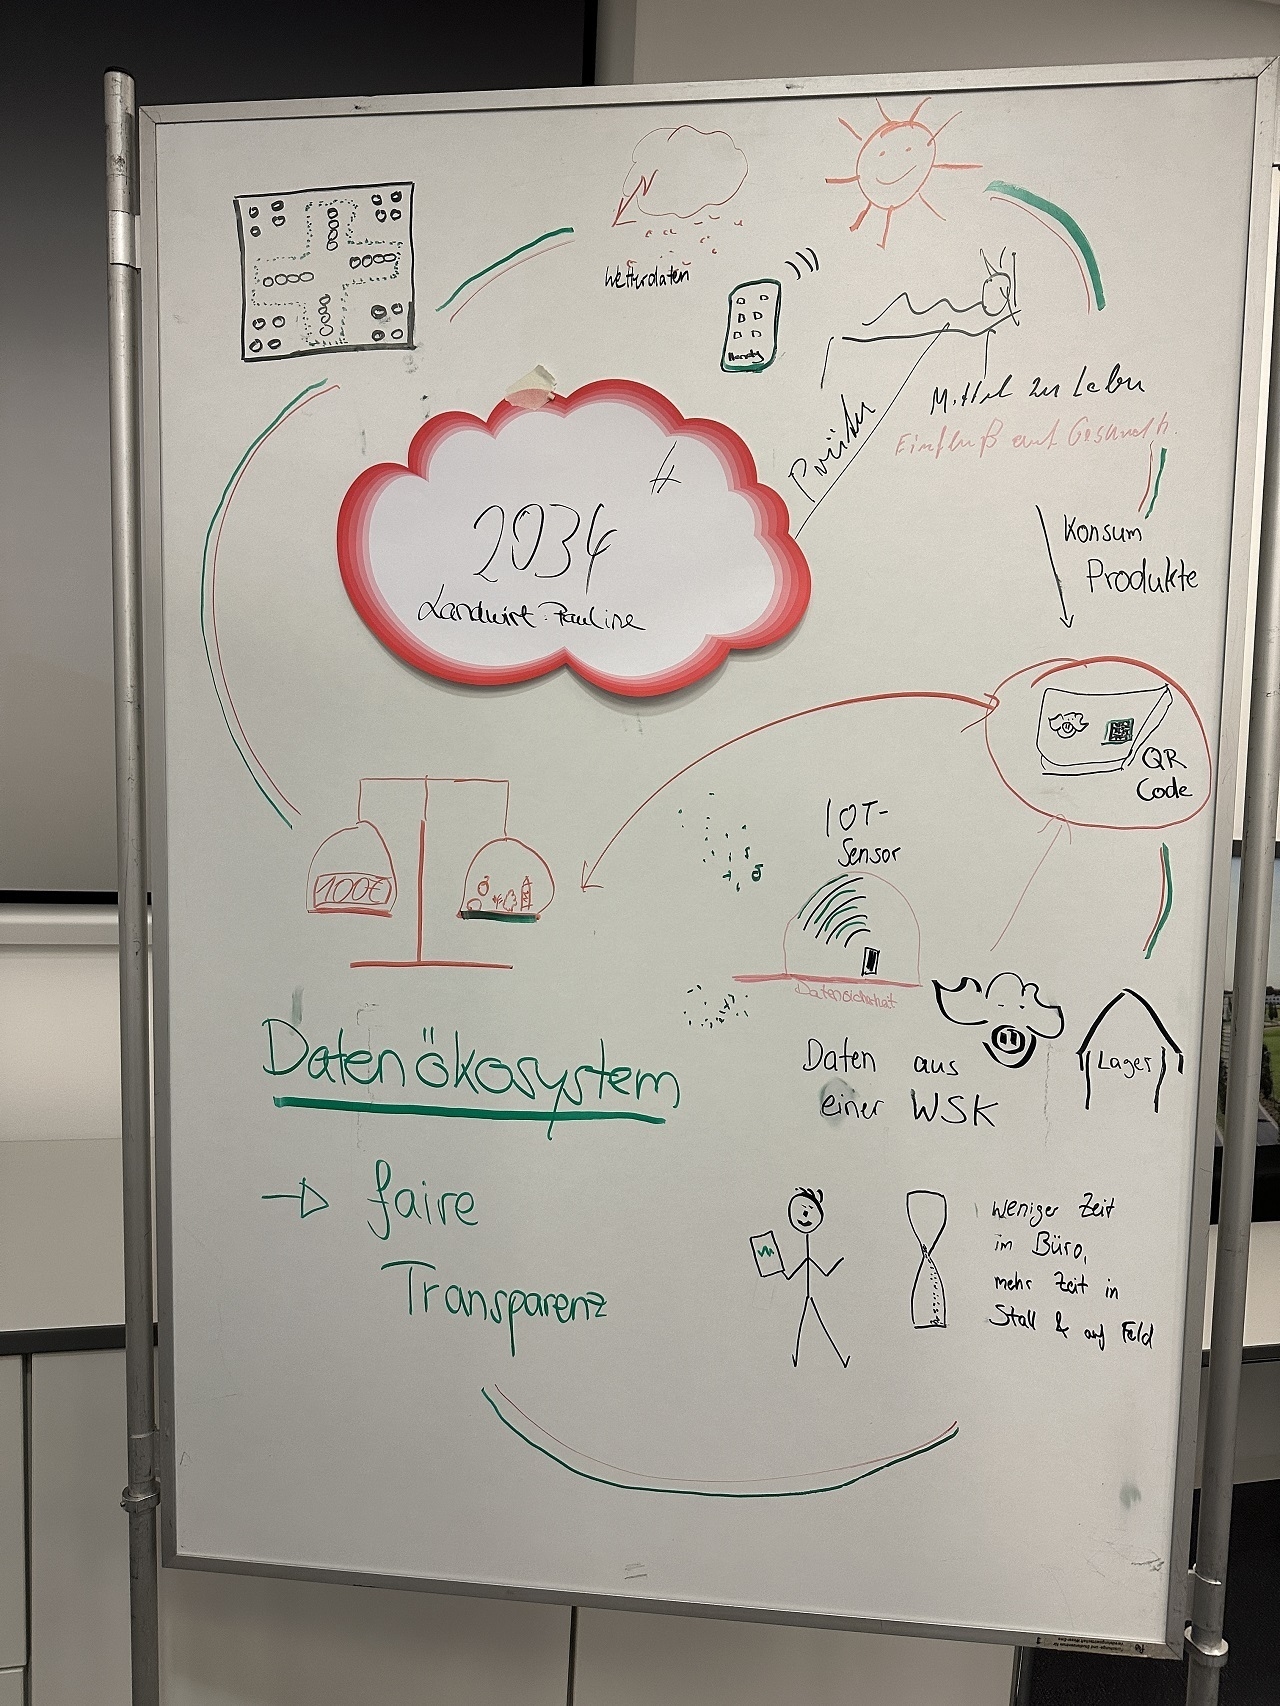 Wetterdaten
Handy
Mittel zu Leben
2034
Landwirt: Pauline
Konsum
Produkte
QR
Code
100€
IOT-
Sensor
Datensicherheit
Daten aus
einer WSK
Lager
Datenökosystem
→ faire
Transparenz
weniger Zeit
im Büro,
mehr Zeit in
Stall & auf Feld